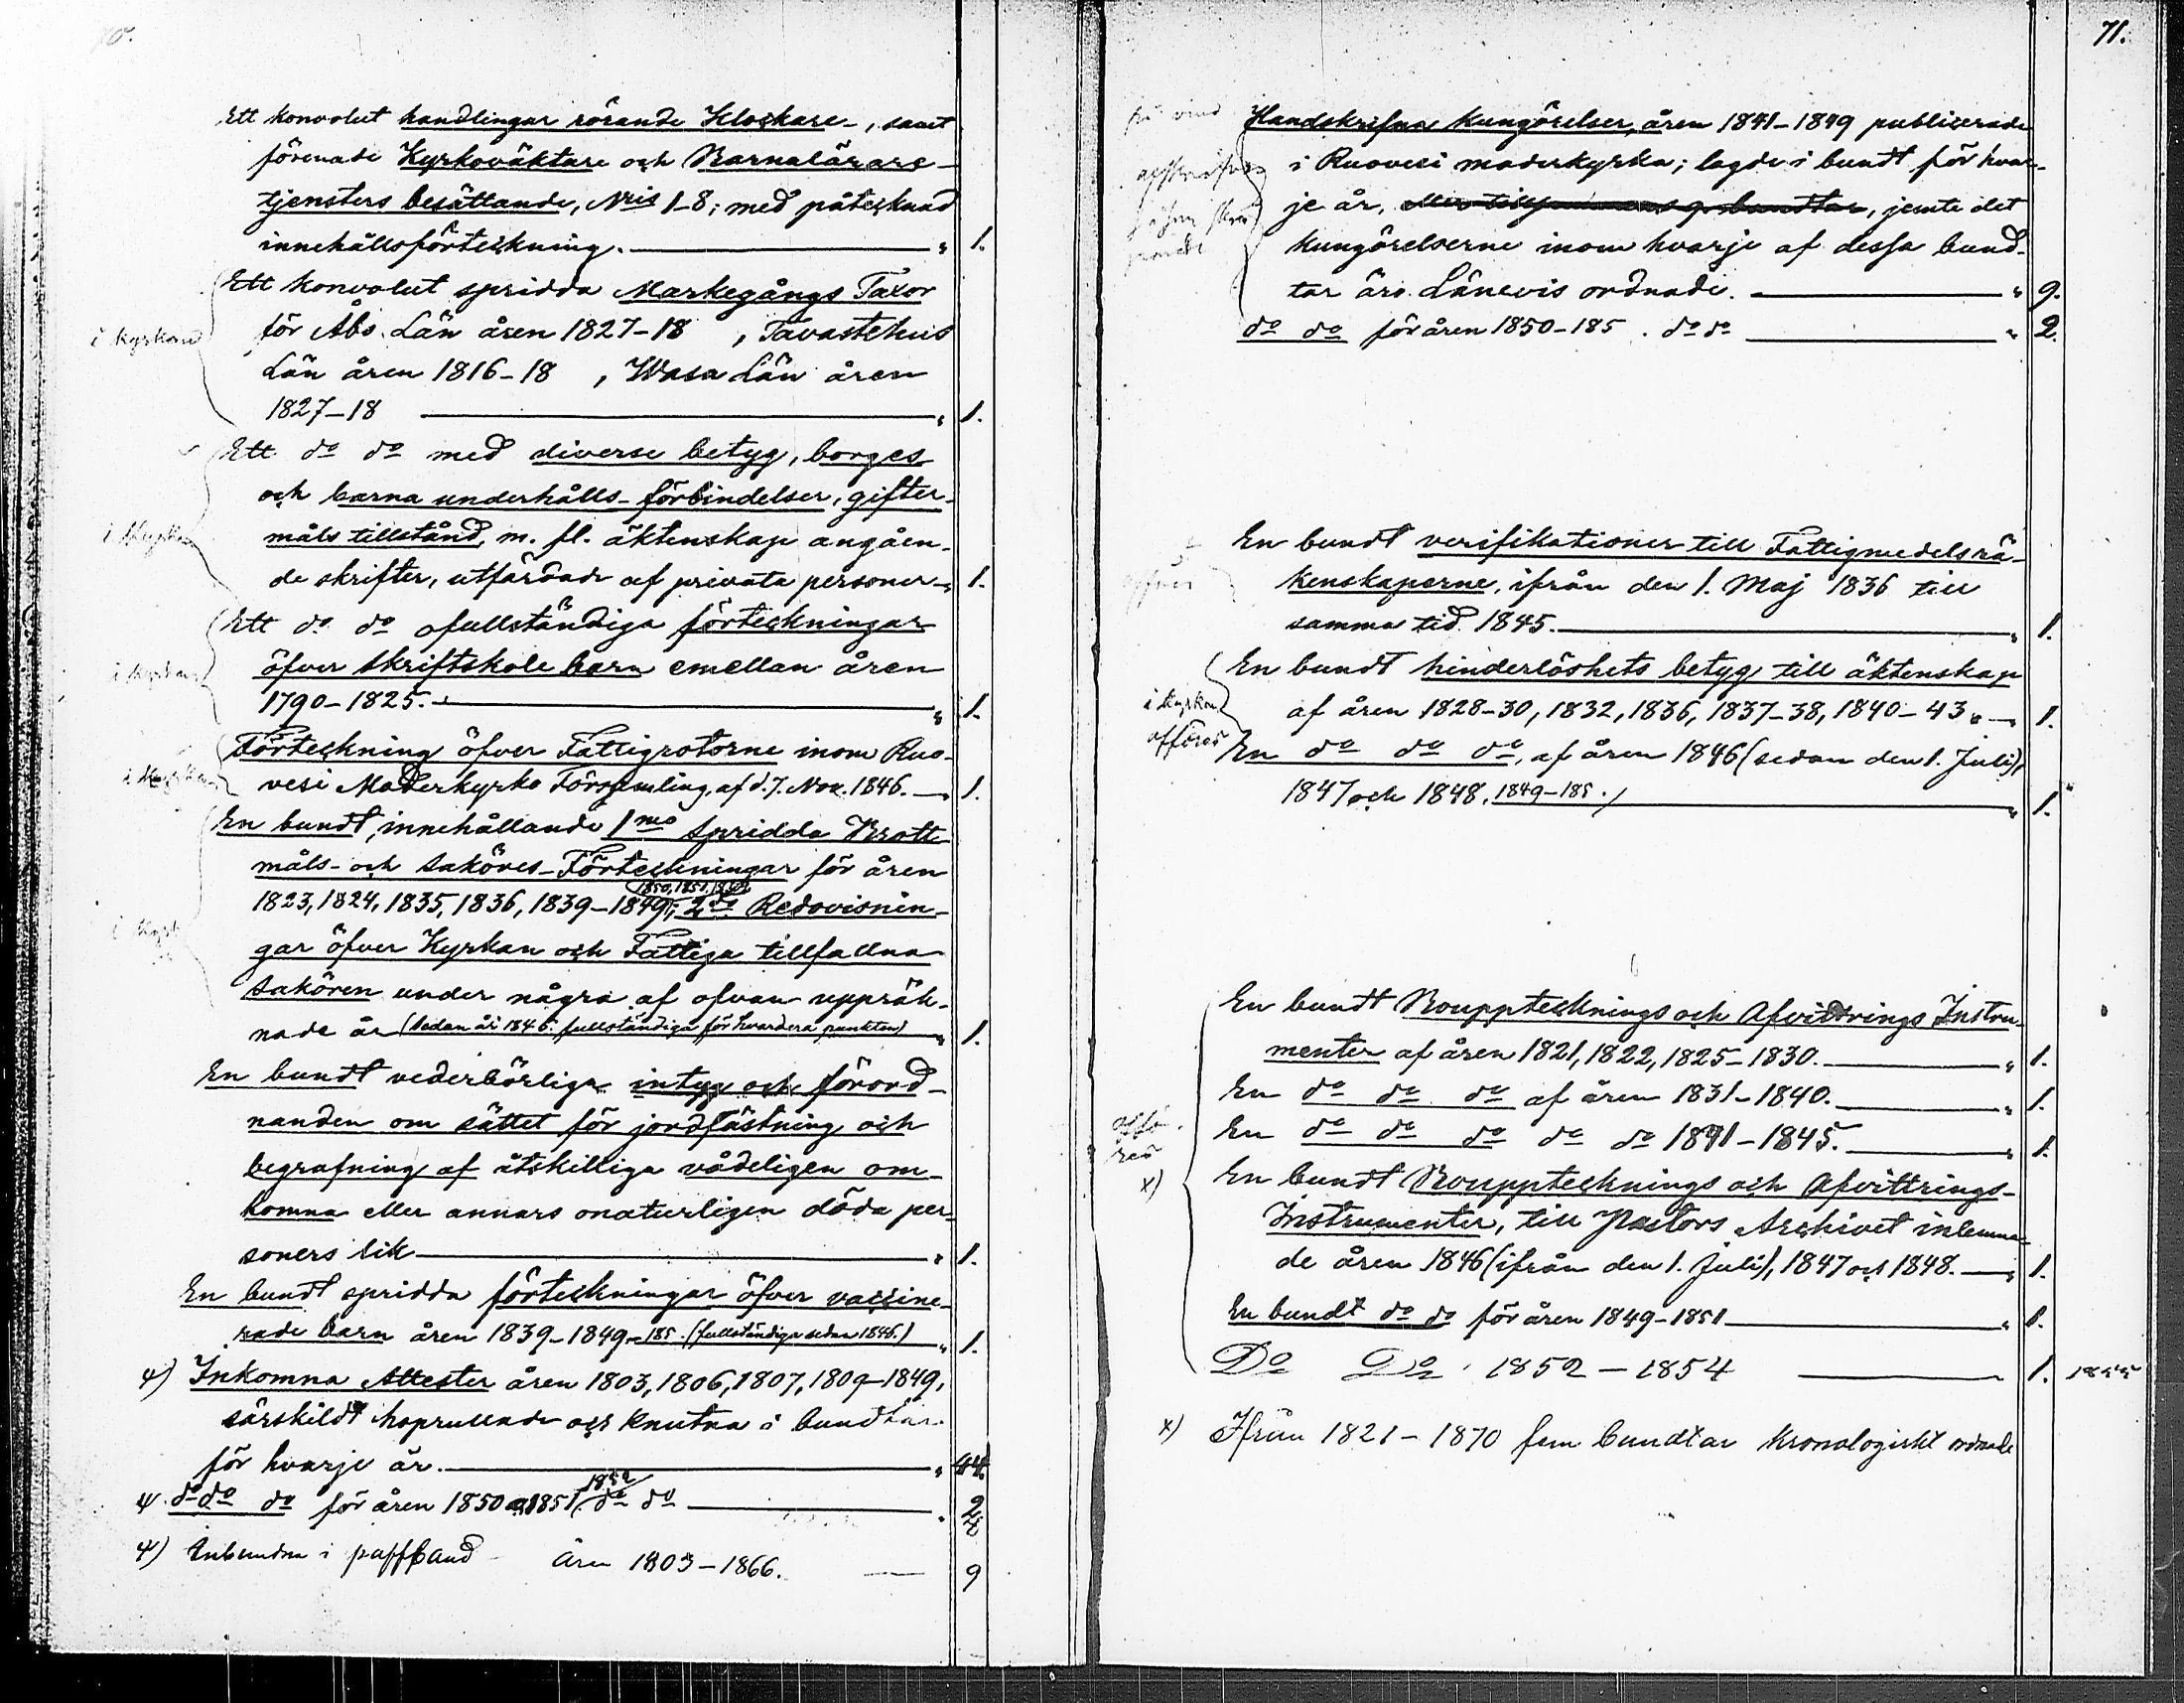 70.
Ett konvolut handlingar rörande Klockare-, samt
förenade Kyrkoväktare och Barnalärare-
tjensters besättande, Nris 1-8; med påtecknad
innehållsförteckning. — " 1.
Ett konvolut spridda Markegångs Taxor
för Åbo Län åren 1827-18 , Tavastehus
i kyrkan
Län åren 1816-18 , Wasa Län åren
1827-18 — " 1.
Ett do do med diverse betyg, borges
och barna underhålls-förbindelser, gifter-
i kyrkan
måls tillstånd, m. fl. äktenskap angåen-
de skrifter, utfärdade af privata personer — " 1.
Ett do do ofullständiga förteckningar
i kyrkan
öfver skriftskole barn emellan åren
1790-1825. — " 1.
Förteckning öfver Fattigrotorne inom Ruo-
i kyrkan
vesi Moderkyrko Församling, af d. 7. Nov. 1846. — " 1.
En bundt, innehållande 1mo spridda Brott-
måls- och saköres-Förteckningar för åren
1850, 1851, 1852
1823, 1824, 1835, 1836, 1839-1849; 2do Redovisnin-
i kyrk
gar öfver Kyrkan och Fattiga tillfallna
sakören under några af ofvan uppräk-
nade år (sedan år 1846 fullständiga för hvardera punkten) " 1.
En bundt vederbörliga intyg och förord-
nanden om sättet för jordfästning och
begrafning af åtskilliga vådeligen om-
komna eller annars onaturligen döda per-
soners lik — " 1.
En bundt spridda förteckningar öfver vaccine-
rade barn åren 1839-1849-185 . (fullständiga sedan 1846.) " 1.
ψ) Inkomna Attester åren 1803, 1806, 1807, 1809-1849,
särskildt hoprullade och knutna i bundtar
för hvarje år. — " 44.
1852
ψ. do do do för åren 1850 o 1851 do do — " 2
ψ) Inbundna i pappband åren 1803-1866. — 9
71.
Handskrifna Kungörelser, åren 1841-1849 publicerade
i Ruovesi moderkyrka; lagde i bundt för hvar-
je år, , jemte det
kungörelserne inom hvarje af dessa bund-
tar äro Länevis ordnade. — " 9.
do do för åren 1850-185 . do do — " 2.
En bundt verifikationer till Fattigmedelsrä-
kenskaperne, ifrån den 1. Maj 1836 till
samma tid 1845. — " 1.
En bundt hinderlöshets betyg till äktenskap
i kyrkan
af åren 1828-30, 1832, 1836, 1837-38, 1840-43. — " 1.
afföres
En do do do, af åren 1846 (sedan den 1. Juli),
1847 och 1848. 1849-185 . — " 1.
En bundt Bouppteckningsoch Afvittrings Instru-
menter af åren 1821, 1822, 1825-1830. — " 1.
En do do do af åren 1831-1840. — " 1.
affö-
res
En do do do do do 1841-1845. — " 1.
x)
En bundt Bouppteckningsoch Afvittrings-
Instrumenter, till Pastors Archivet inlemna-
de åren 1846 (ifrån den 1. Juli), 1847 och 1848. — " 1.
En bundt do do för åren 1849-1851 — " 1.
Do Do 1852 — 1854 — 1. 1855
x) Ifrån 1821 - 1870 fem bundtar kronologiskt ordnade